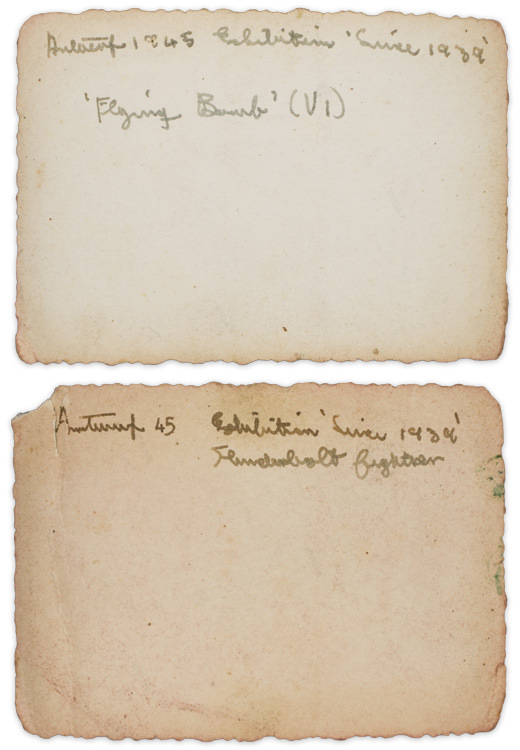 Antwerp 1945 Exhibition 'Since 1939'
'Flying Bomb' (V1)
Antwerp 45 Exhibition 'Since 1939'
Thunderbolt fighter